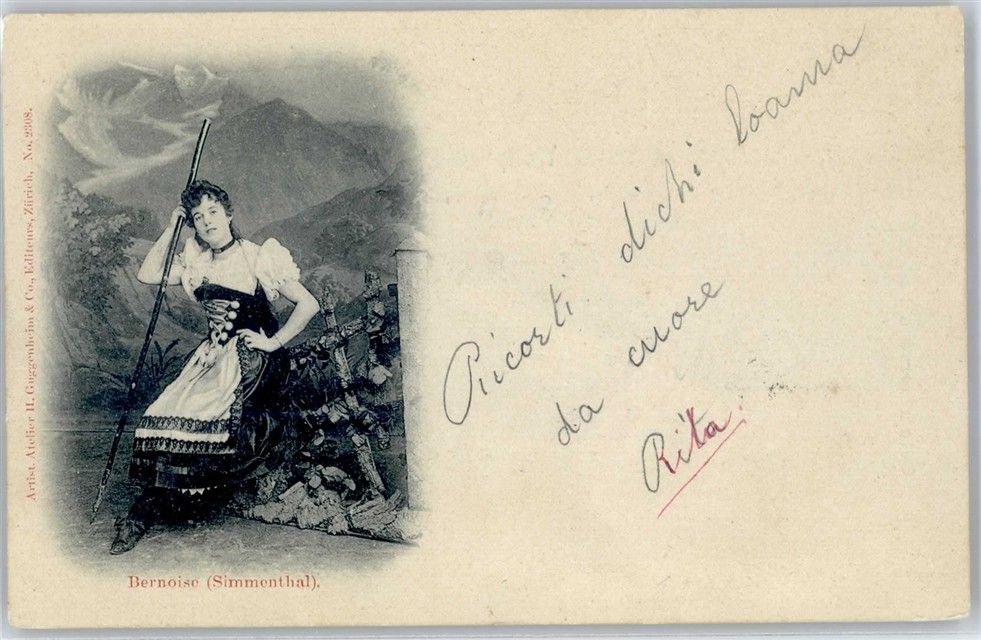 Artist. Atelier H. Guggenheim & Co., Editeurs, Zürich, No. 2308.
Bernoise (Simmenthal).
Ricorti dichi
da cuore
Rita